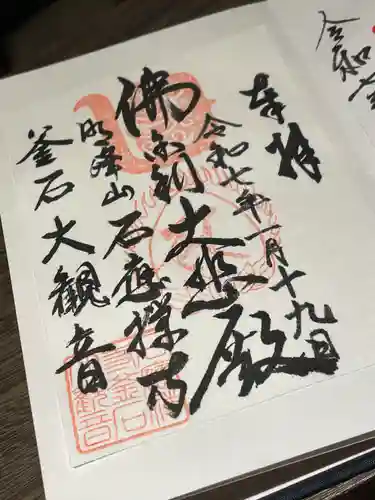 奉拝
令和七年一月十九日
佛
大悲殿
明峰山石應禅寺
釜石大観音
令和